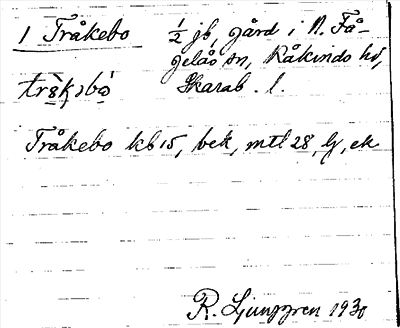 1 Tråkebo ½ jb, gård i N. Få-
gelås sn, Kåkinds hd,
Skarab. l.
Tråkebo kb 15, bek, mtl 28, lj, ek
R. Ljunggren 1930